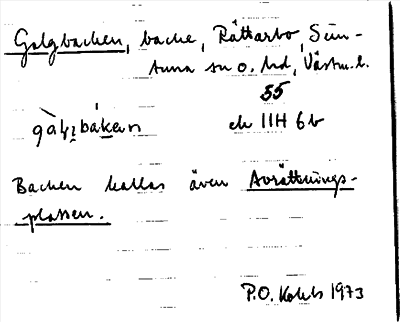 Galgbacken, backe, Rättarbo, Sim-
tuna sn o. hd, Västm. l.
55
galjbakən
ek 11H 6b
Backen kallas även Avrättnings-
platsen.
P.O. 1973